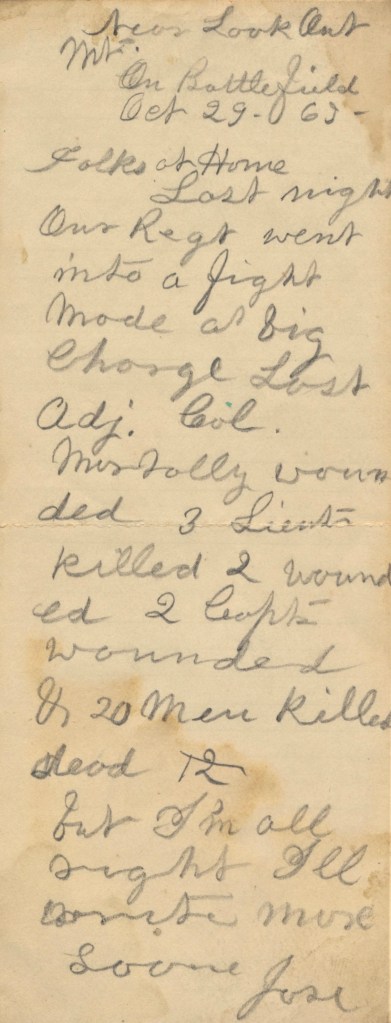 Near Look Out
Mt.
On Battle Field
Oct 29 - 63 -
Folks at Home
Last night
Our Regt went
into a fight
Made a big
Charge Lost
Adj. Col.
Mortally woun
ded 3 Lieuts
killed 2 wound
ed 2 Capts
wounded
& 20 Men killed
dead 12
but I'm all
right I'll
write more
soone Jose